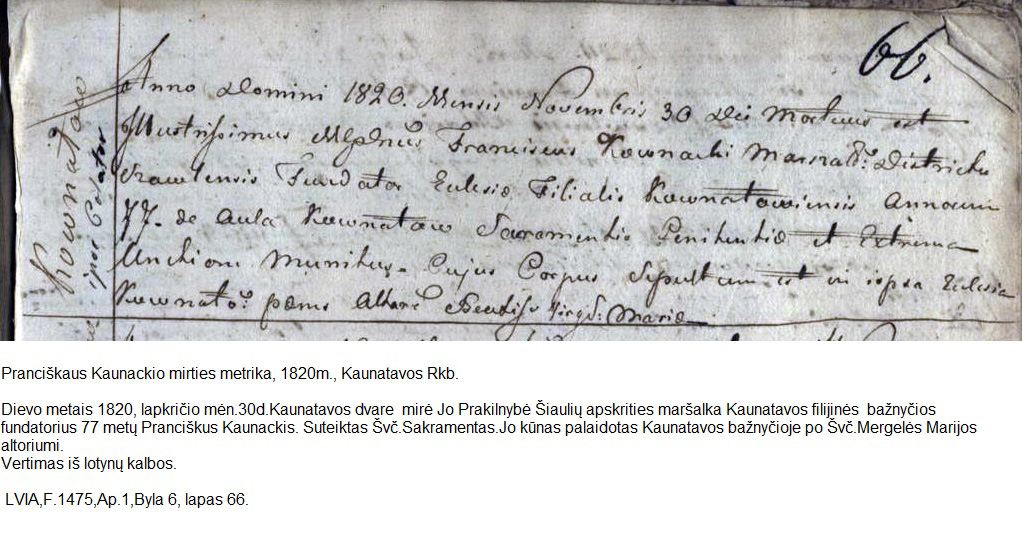 66.
Kownatowe
ipse
Anno Domini 1820. Mensis Novembris 30 Die Mortuus est
Illustrissimus Mgdnus Franciscus Kownacki Marszał: Districtus
Szawlensis Fundator Eclesie Filialis Kownatowiensis Annorum
77. de Aula Kownatow Sacramentis Penitentie et Extrema
Unctione Munitus. Cujus Corpus Sepultum est in ispsa Eclesia
Kownato: Altare Beatisse Virg: Marie
Pranciškaus Kaunackio mirties metrika, 1820m., Kaunatavos Rkb.
Dievo metais 1820, lapkričio mėn.30d.Kaunatavos dvare mirė Jo Prakilnybė Šiaulių apskrities maršalka Kaunatavos filijinės bažnyčios
fundatorius 77 metų Pranciškus Kaunackis. Suteiktas Švč.Sakramentas.Jo kūnas palaidotas Kaunatavos bažnyčioje po Švč.Mergelės Marijos
altoriumi.
Vertimas iš lotynų kalbos.
LVIA,F.1475,Ap.1,Byla 6, lapas 66.